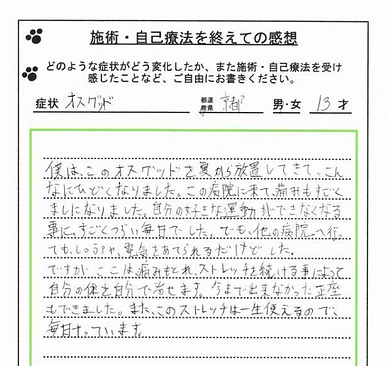 施術・自己療法を終えての感想
どのような症状がどう変化したか、また施術・自己療法を受け
感じたことなど、ご自由にお書きください。
症状 オスグッド 都道府県 京都 男・女 13 才
僕は、このオスグッドを夏から放置してきて、こん
なにひどくなりました。この病院に来て、痛みもすごく
ましになりました。自分の好きな運動ができなくなる
事に、すごくつらい毎日でした。でも、他の病院へ行っ
ても、しっぷや、電気をあてられるだけでした。
ですが、ここは、痛みもとれ、ストレッチを続ける事によって
自分の体を自分で治せます。今まで出来なかった正座
もできました。また、このストレッチは一生使えるので、
毎日やっています。